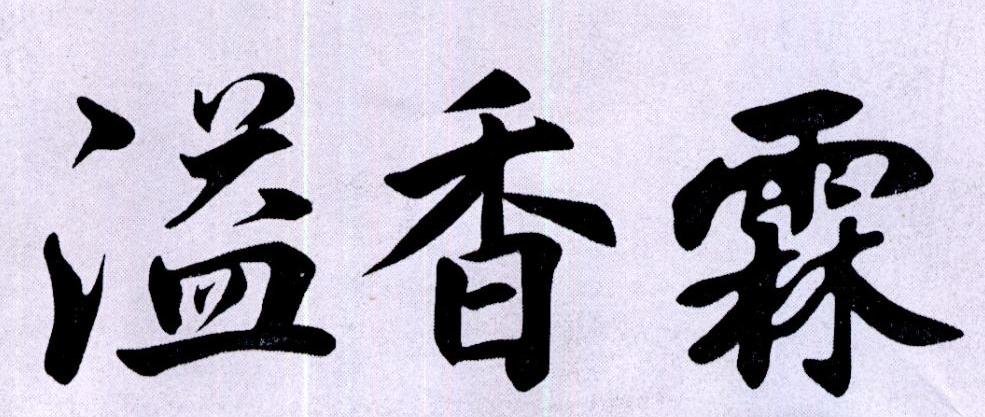 溢香霖